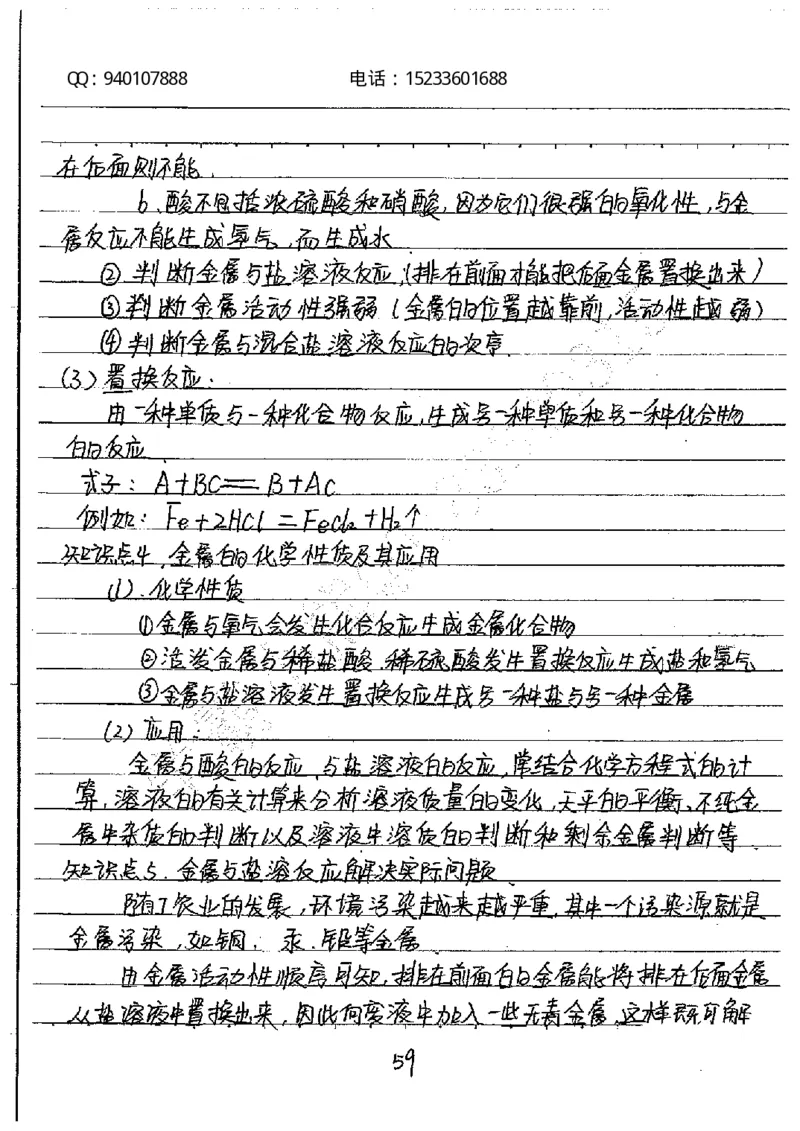 QQ：940107888 电话：15233601688
在后面则不能.
b、酸不包括浓硫酸和硝酸，因为它们很强的氧化性，与金
属反应不能生成氢气，而生成水
② 判断金属与盐溶液反应，(排在前面才能把后面金属置换出来)
③判断金属活动性强弱 (金属的位置越靠前，活动性越弱)
④判断金属与混合盐溶液反应的次序.
(3) 置换反应：
由一种单质与一种化合物反应，生成另一种单质和另一种化合物
的反应
式子：A+BC══B+AC
例如：Fe+2HCl=FeCl₂+H₂↑
知识点4、金属的化学性质及其应用
(1).化学性质
①金属与氧气会发生化合反应生成金属化合物
②活泼金属与稀盐酸、稀硫酸发生置换反应生成盐和氢气
③金属与盐溶液发生置换反应生成另一种盐与另一种金属
(2) 应用：
金属与酸的反应、与盐溶液的反应，常结合化学方程式的计
算，溶液的有关计算来分析溶液质量的变化，天平的平衡、不纯金
属中杂质的判断以及溶液中溶质的判断和剩余金属判断等
知识点5.金属与盐溶反应解决实际问题
随有了农业的发展，环境污染越来越严重，其中一个污染源就是
金属污染，如铜、汞、铅等金属
由金属活动性顺序可知，排在前面的金属能将排在后面金属
从盐溶液中置换出来，因此向废液中加入一些无毒金属，这样既可解
59